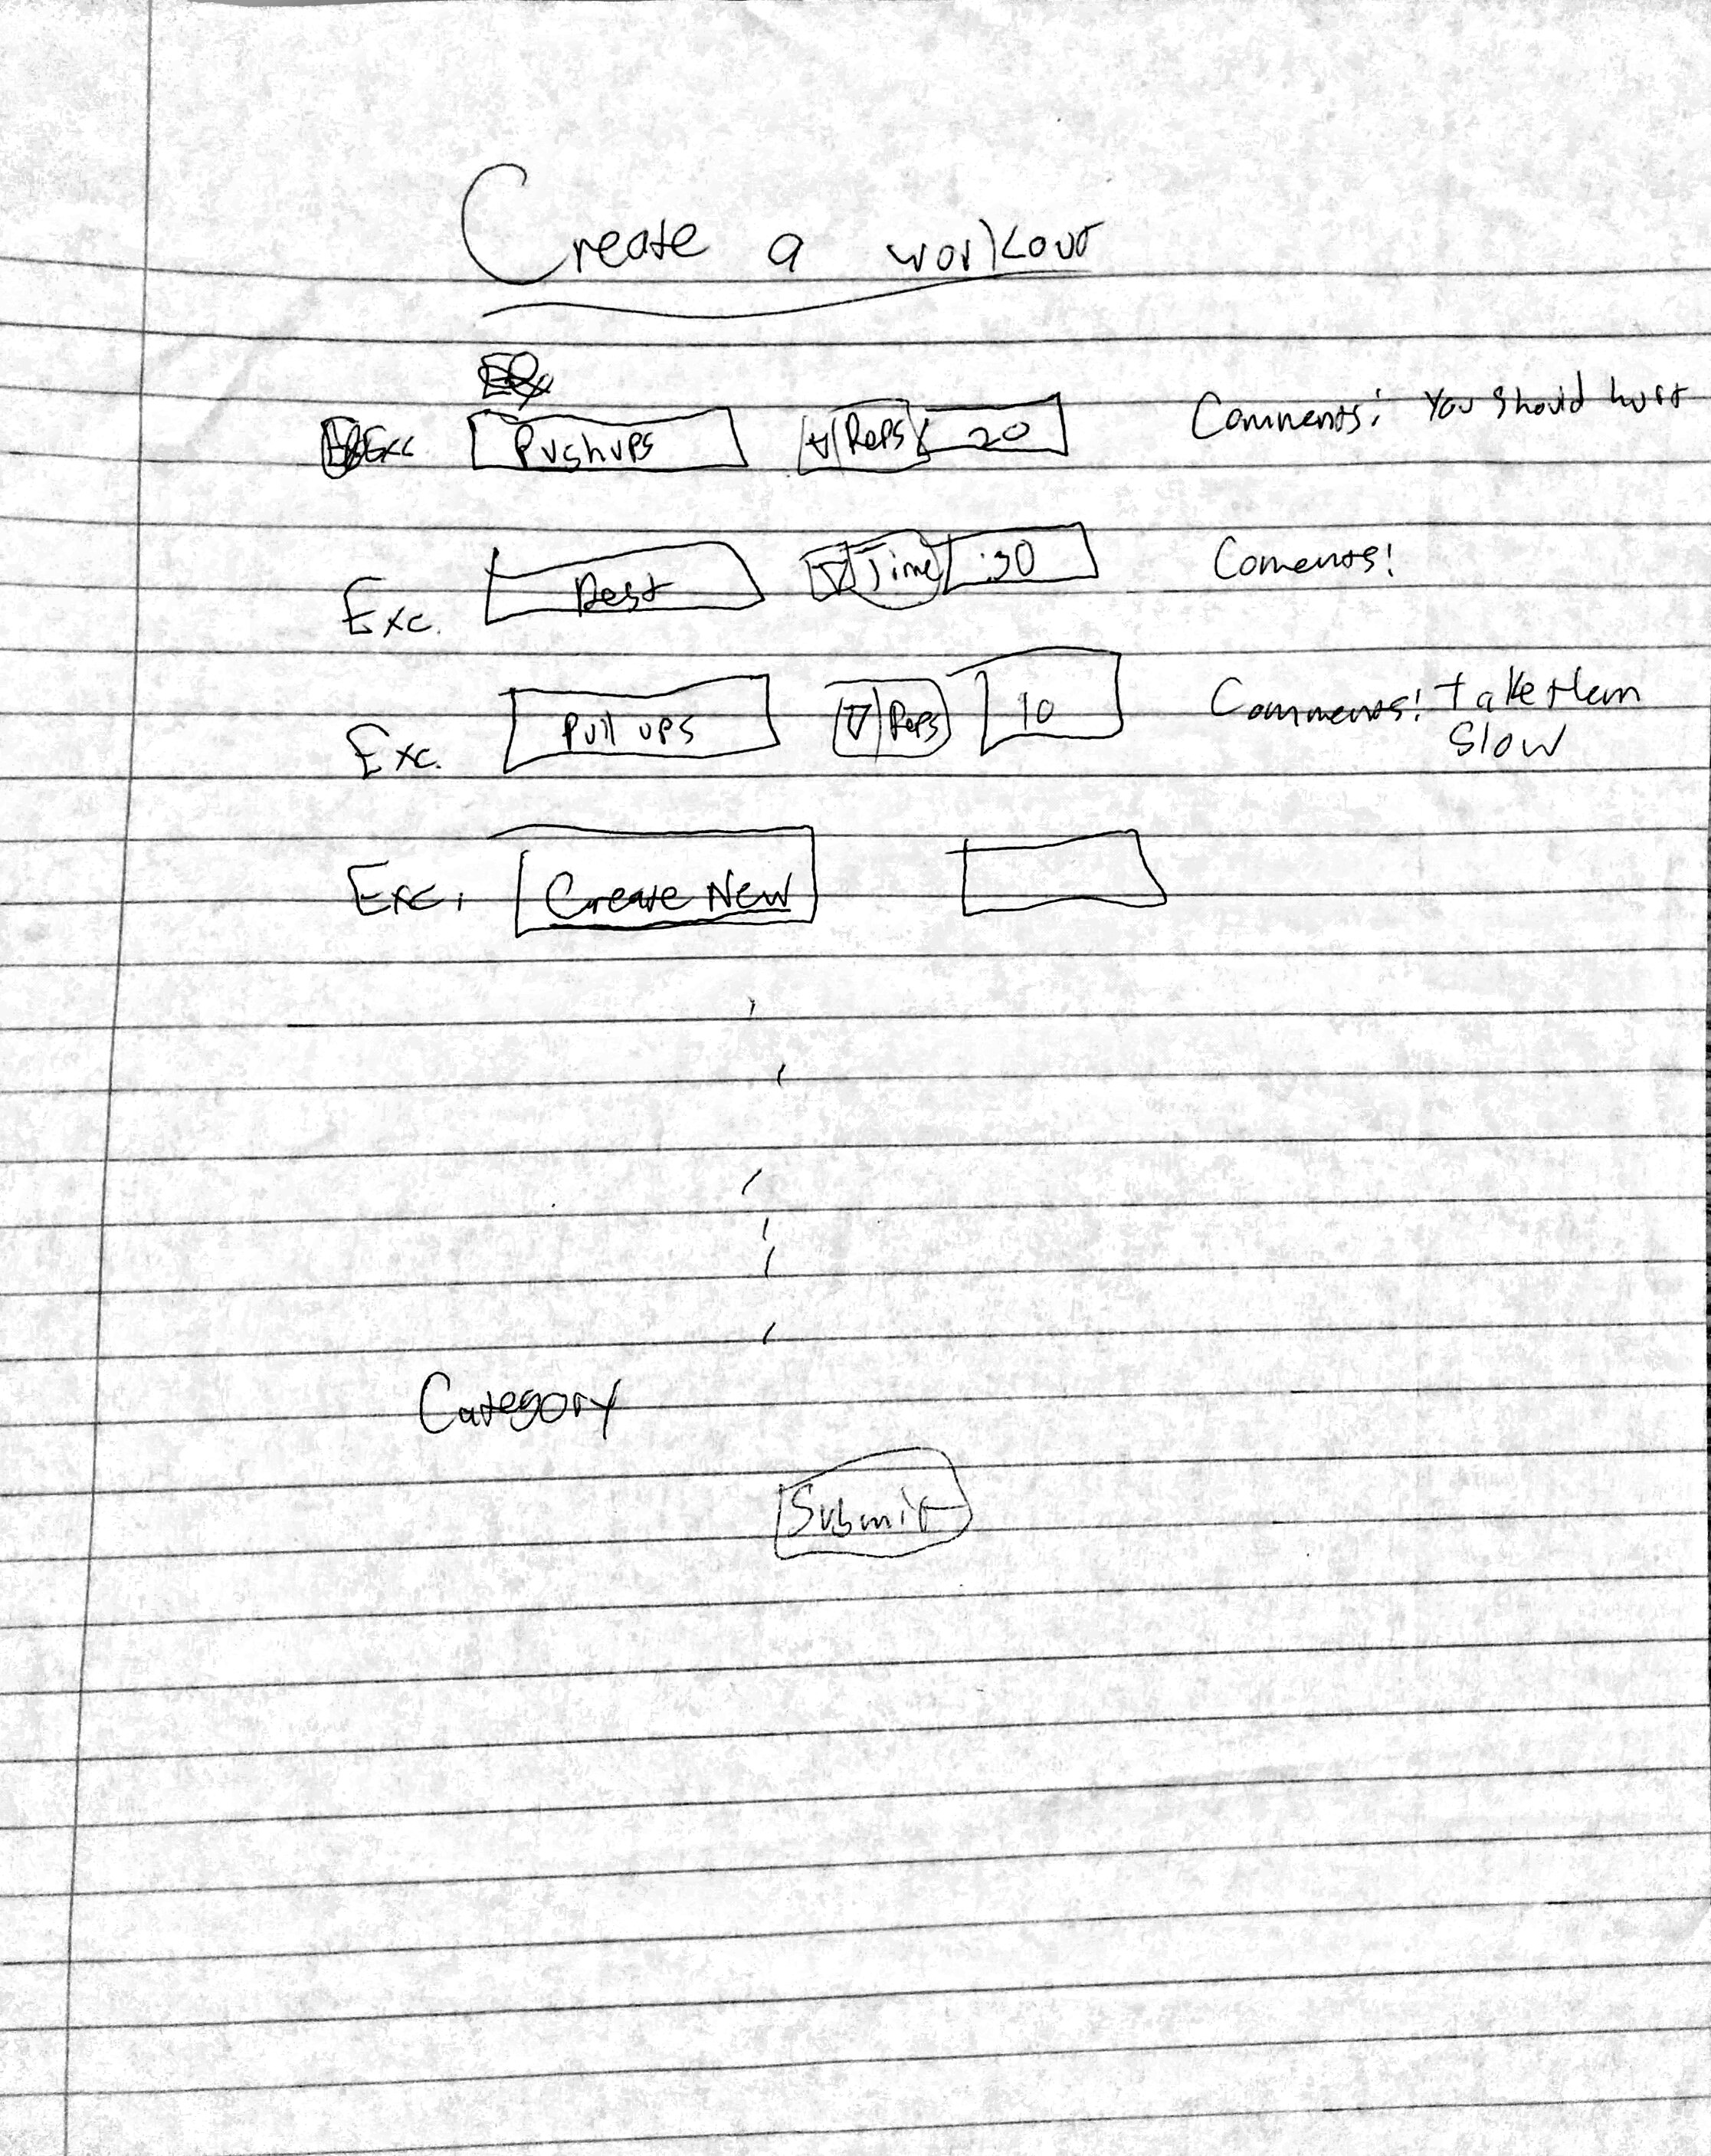 Create a workout
Exc Pushups Reps 20 Comments: You should hurt
Exc. Rest Time :30 Coments:
Exc. Pull ups Reps 10 Comments: take them
Slow
Exc. Create New
Category
Submit